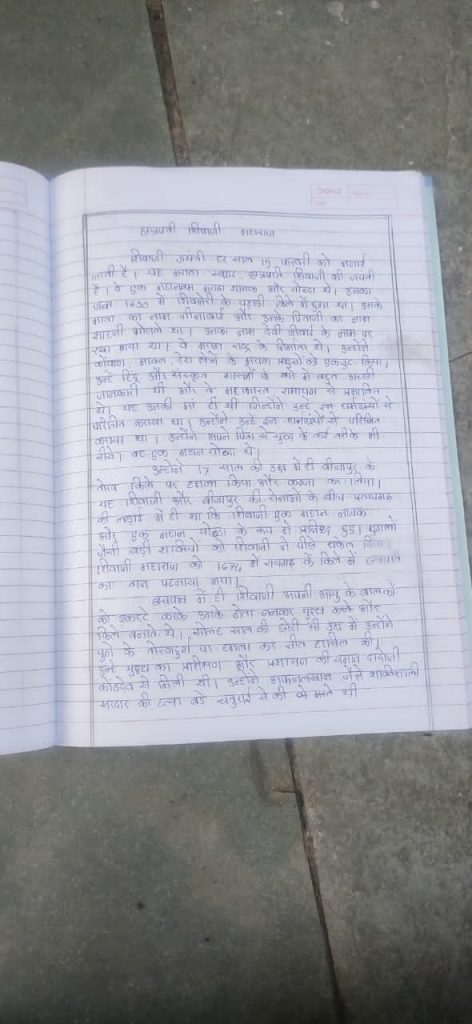 छत्रपती शिवाजी महाराज
शिवाजी जयंती हर साल 19 फरवरी को मनाई
जाती है। यह मराठा सम्राट छत्रपति शिवाजी की जयंती
है। वे एक महानतम मराठा शासक और योध्दा थे। उनका
जन्म 1630 में शिवनेरी के पहाडी किले में हुआ था। उनके
माता का नाम जीजाबाई और उनके पिताजी का नाम
शाहजी भोसले था। उनका नाम देवी शिवाई के नाम पर
रखा गया था। वे मराठा राष्ट्र के निर्माता थे। उन्होंने
कोंकण, मावल देश क्षेत्रों के मराठा प्रमुखों को एकजुट किया,
उन्हें हिंदू और संस्कृत शास्त्रों के बारे में बहुत अच्छी
जानकारी थी और वे महाभारत रामायण से प्रभावित
थे। यह उनकी माँ ही थी जिन्होंने उन्हें इन धर्मग्रंथों से
परिचित कराया था। उन्होंने उन्हें इन धर्मग्रंथों से परिचित
कराया था। उन्होंने अपने पिता से युध्द के कई तरीके भी
सीखे। वह एक महान योध्दा थे।
उन्होंने 17 साल की उम्र में ही बीजापुर के
तोरण किले पर हमला किया और कब्जा कर लिया।
यह शिवाजी और बीजापुर की सेनाओं के बीच प्रतापगढ
की लडाई में ही था कि शिवाजी एक महान नायक
और एक महान योध्दा के रूप में प्रसिध्द हुए। मुगलों
जैसी बडी शक्तियों को शिवाजी ने पीछे धकेल दिया।
शिवाजी महाराज को 1674 में रायगढ के किले में छत्रपति
का ताज पहनाया गया।
बचपन में ही शिवाजी अपनी आयु के बालकों
को इकट्टे करके उनके नेता बनकर युध्द करने और
किले बनाते थे। सोलह साल की छोटी सी उम्र में उन्होंने
पुणे के तोरणदुर्ग पर हमला कर जीत हासिल की।
उन्हें युध्द का प्रशिक्षण और प्रशासन की समझ दादोजी
कोंडदेव से मिली थी। उन्होंने अफजलखान जैसे शक्तिशाली
सरदार की हत्या बडे चतुराई से की वो मरते भी